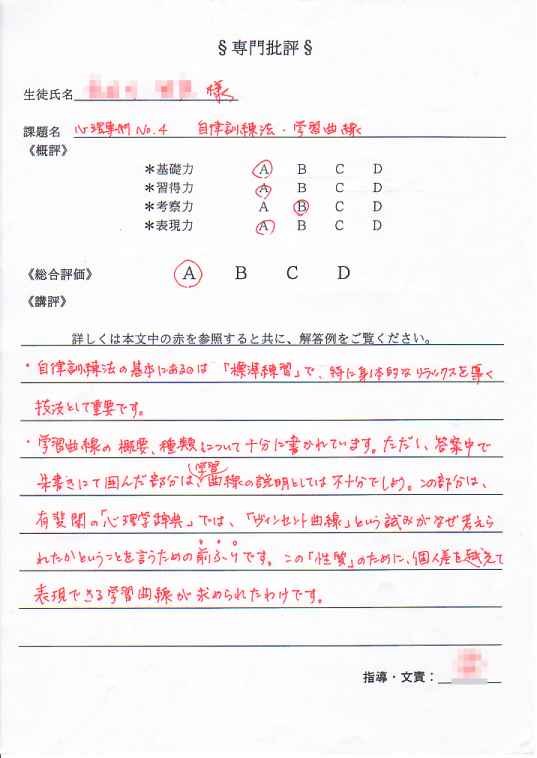 §専門批評§
生徒氏名 様
課題名 心理専門 No.4 自律訓練法・学習曲線
《概評》
＊基礎力 A B C D
＊習得力 A B C D
＊考察力 A B C D
＊表現力 A B C D
《総合評価》 A B C D
《講評》
詳しくは本文中の赤を参照すると共に、解答例をご覧ください。
・自律訓練法の基本にあるのは「標準練習」で、特に身体的なリラックスを導く
技法として重要です。
・学習曲線の概要、種類について十分に書かれています。ただし、答案中で
朱書きにて囲んだ部分は、学習曲線の説明としては不十分でしょう。この部分は、
有斐閣の「心理学辞典」では、「ヴィンセント曲線」という試みがなぜ考えら
れたかということを言うための前ふりです。この「性質」のために、個人差を越えて
表現できる学習曲線が求められたわけです。
指導・文責：